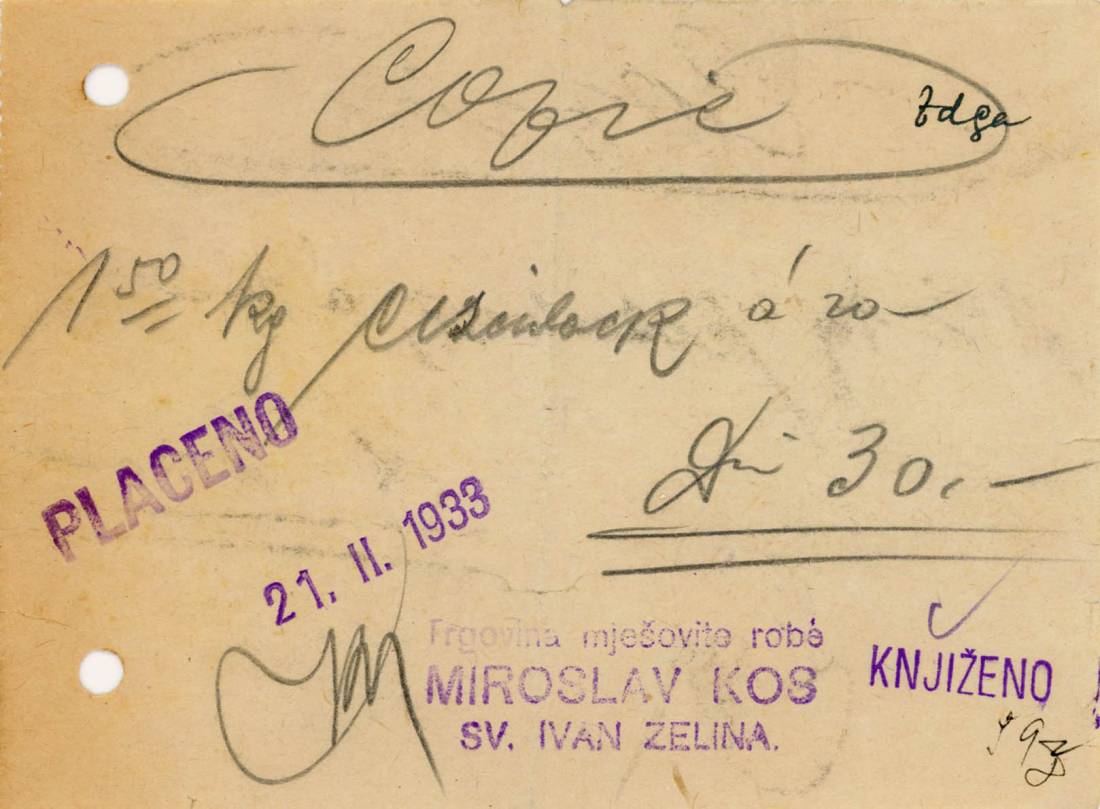 Copić
1 50 kg á 20
Din 30.-
PLACENO
21. II. 1933
Trgovina mješovite robé
MIROSLAV KOS
SV. IVAN ZELINA.
KNJIŽENO